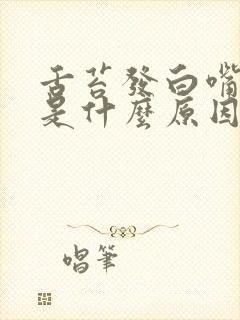 舌苔發白嘴
是什麼原因
唱筆